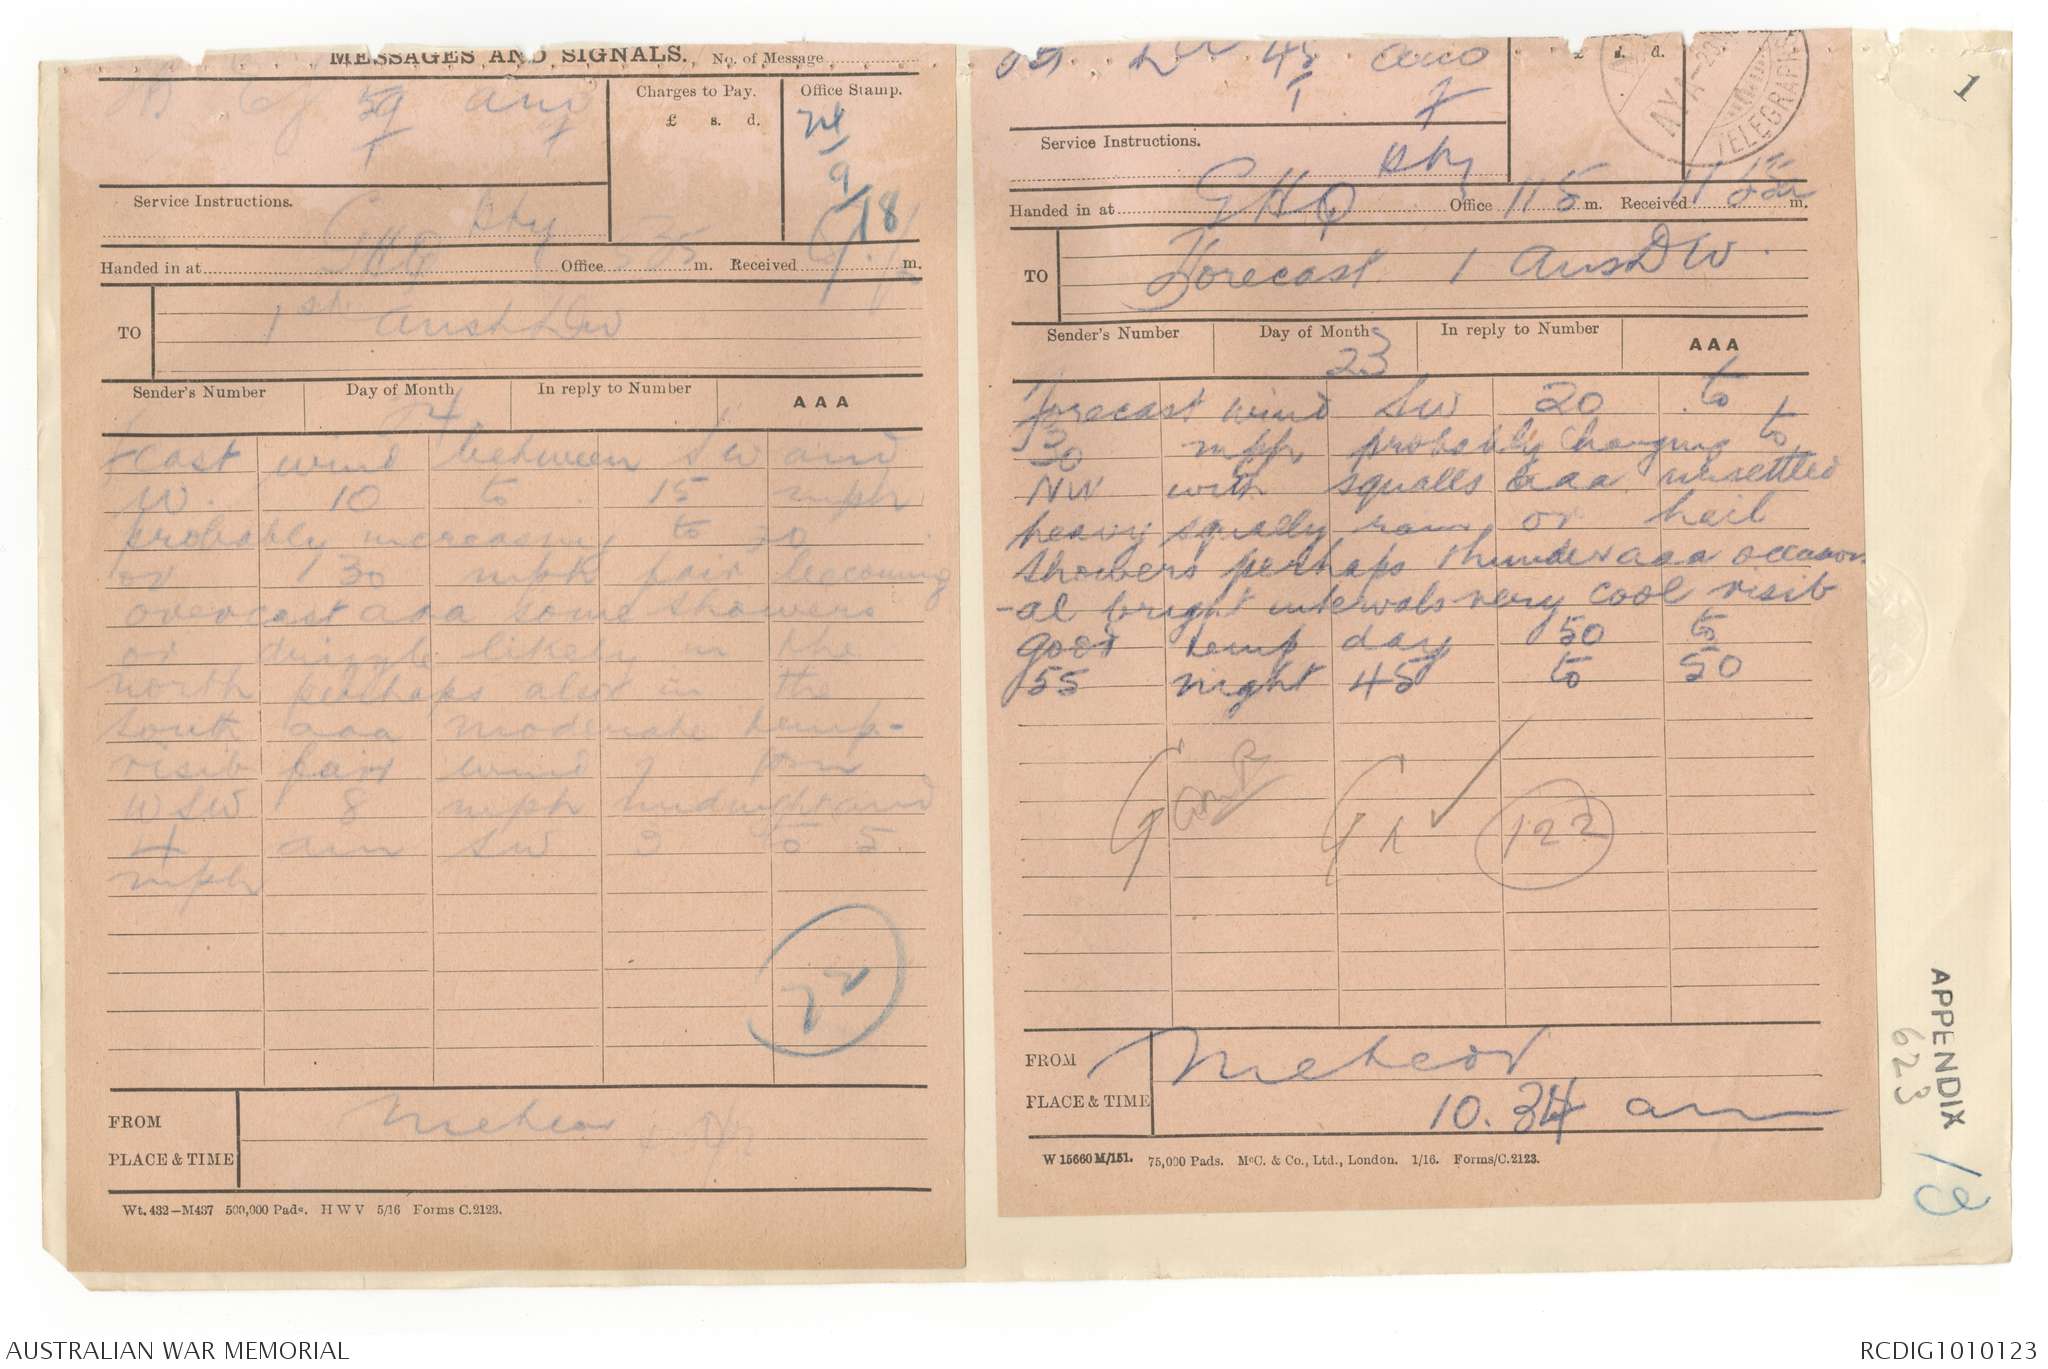 MESSAGES AND SIGNALS. No. of Message
59
1
Charges to Pay.
£ s. d.
Office Stamp.
24
9
18
Service Instructions.
Handed in at GHQ Office 535 m. Received m.
TO 1st Aust Div
Sender's Number
Day of Month
24
In reply to Number
AAA
Fcast wind between SW and
W. 10 to 15 mph
probably increasing to 20
or 30 mph fair becoming
overcast aaa some showers
or drizzle likely in the
north perhaps also in the
south aaa moderate temp-
visib fair wind 9 pm
WSW 8 mph midnight and
4 am SW 3 to 5
mph
22
FROM Meteor
PLACE & TIME
Wt. 432—M437 500,000 Pads. H W V 5/16 Forms C.2123.
45
1
£ s. d.
AYA-23
TELEGRAPHS
Service Instructions.
Handed in at GHQ Office 115 m. Received m.
TO Forecast 1 Aus Div.
Sender's Number
Day of Month
23
In reply to Number
AAA
Forecast wind SW 20 to
30 mph probably changing to
NW with squalls aaa unsettled
heavy squally rain or hail
showers perhaps thunder aaa occasion
-al bright intervals very cool visib
good temp day 50 to
55 night 45 to 50
G
122
FROM Meteor
PLACE & TIME 10.34 am
W 15660 M/151. 75,000 Pads. McC. & Co., Ltd., London. 1/16. Forms/C.2123.
1
APPENDIX
623
AUSTRALIAN WAR MEMORIAL
RCDIG1010123